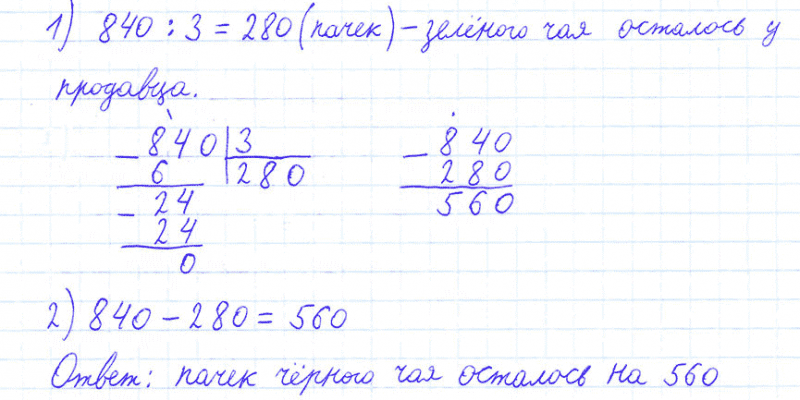 1) 840 : 3 = 280 (пачек) – зелёного чая осталось у
продавца.
– 840 | 3
6 | 280
– 24
24
0
– 840
280
560
2) 840 – 280 = 560
Ответ: пачек чёрного чая осталось на 560